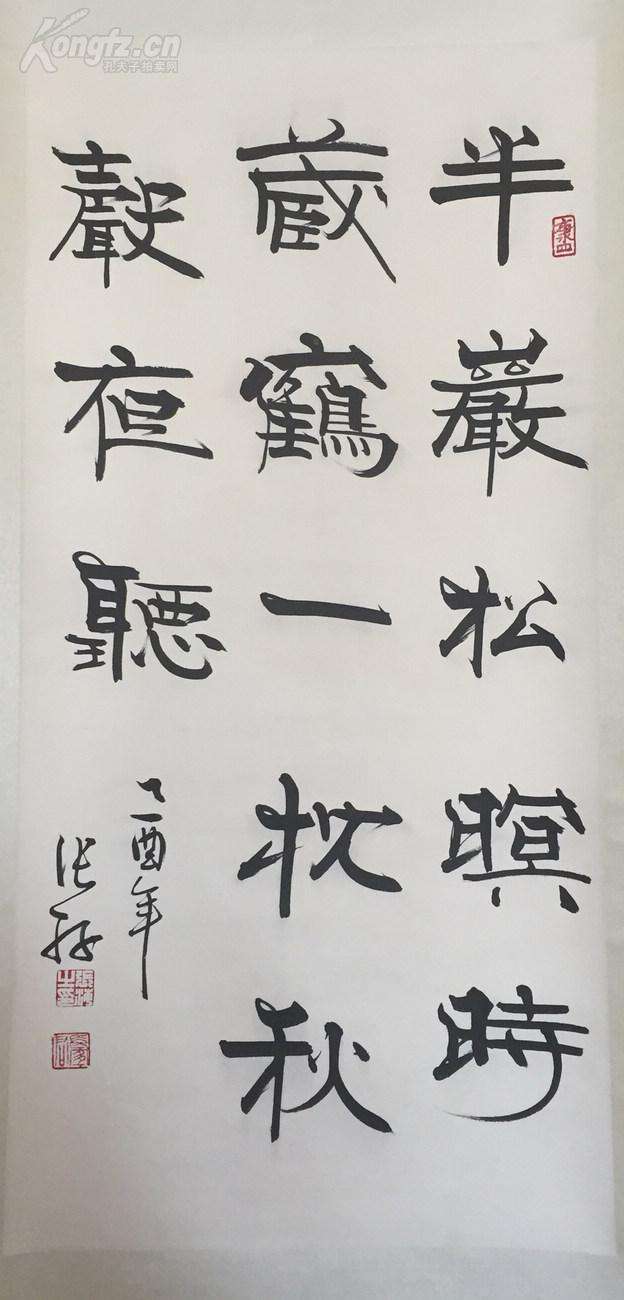 Kongfz.cn
孔夫子拍卖网
半巖松暝時
藏鶴一枕秋
聲夜聽
乙酉年
张